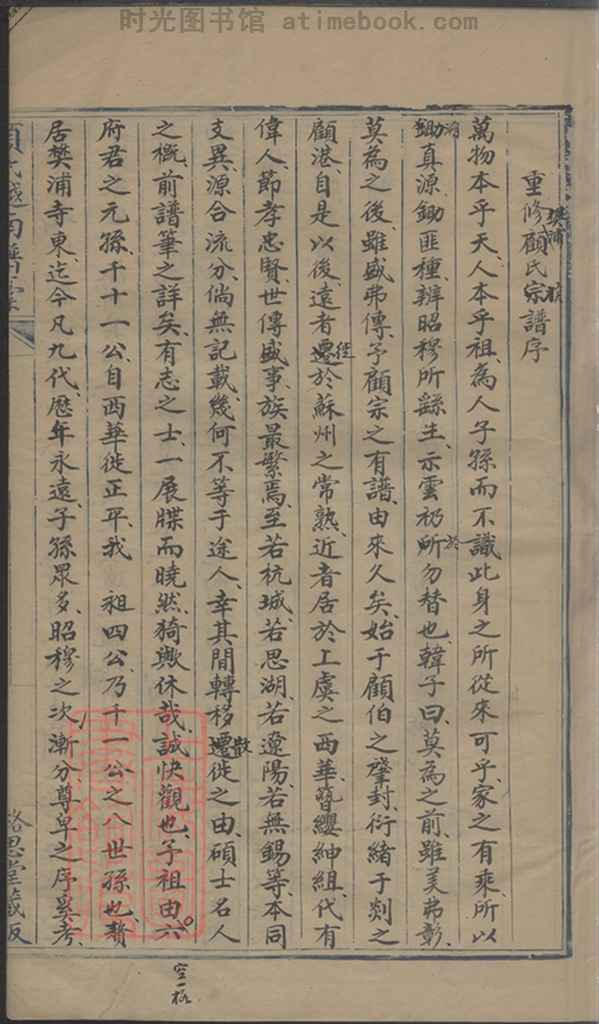 时光图书馆 - atimebook.com
重修顧氏宗譜序
樊浦
萬物本乎天、人本乎祖、為人子孫而不識此身之所從來可乎、家之有乘所以
真源、鋤匪種、辨昭穆所繇生、示雲礽所勿替也、韓子曰、莫為之前、雖美弗彰、
莫為之後、雖盛弗傳、予顧宗之有譜、由來久矣、始于顧伯之肇封、衍緒于剡之
顧港、自是以後、遠者遷於蘇州之常熟、近者居於上虞之西華、簪纓紳組、代有
徙
偉人、節孝忠賢、世傳盛事、族最繁焉、至若杭城、若思湖、若遼陽、若無錫等、本同
支異源合流分、倘無記載、幾何不等于途人、幸其間轉移遷徙之由、碩士名人
散
之概、前譜筆之詳矣、有志之士、一展牒而曉然、猗歟休哉、誠快觀也、予祖由六
府君之元孫、千十一公、自西華徙正平、我 祖四公、乃千一公之八世孫也、贅
居樊浦寺東、迄今凡九代、歷年永遠、子孫眾多、昭穆之次、漸分、尊卑之序奚考、
空一格